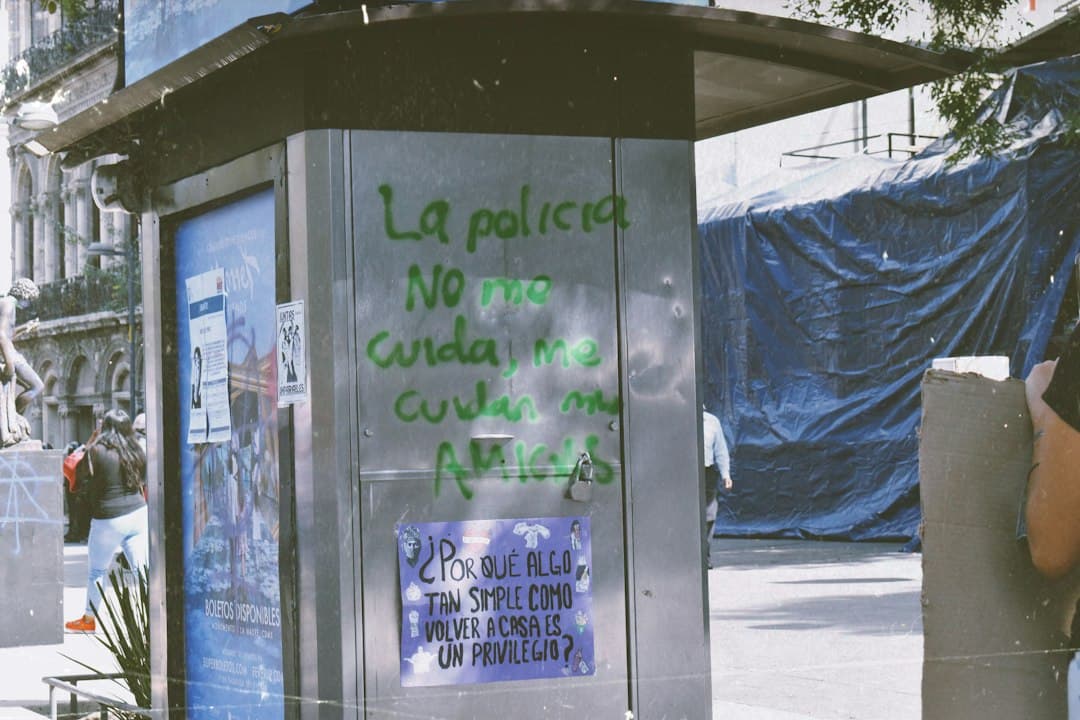 La policia
NO me
cuida, me
cuidan mis
AMIGXS
¿POR QUÉ ALGO
TAN SIMPLE COMO
VOLVER A CASA ES
UN PRIVILEGIO?
BOLETOS DISPONIBLES
SUPERBOLETOS.COM